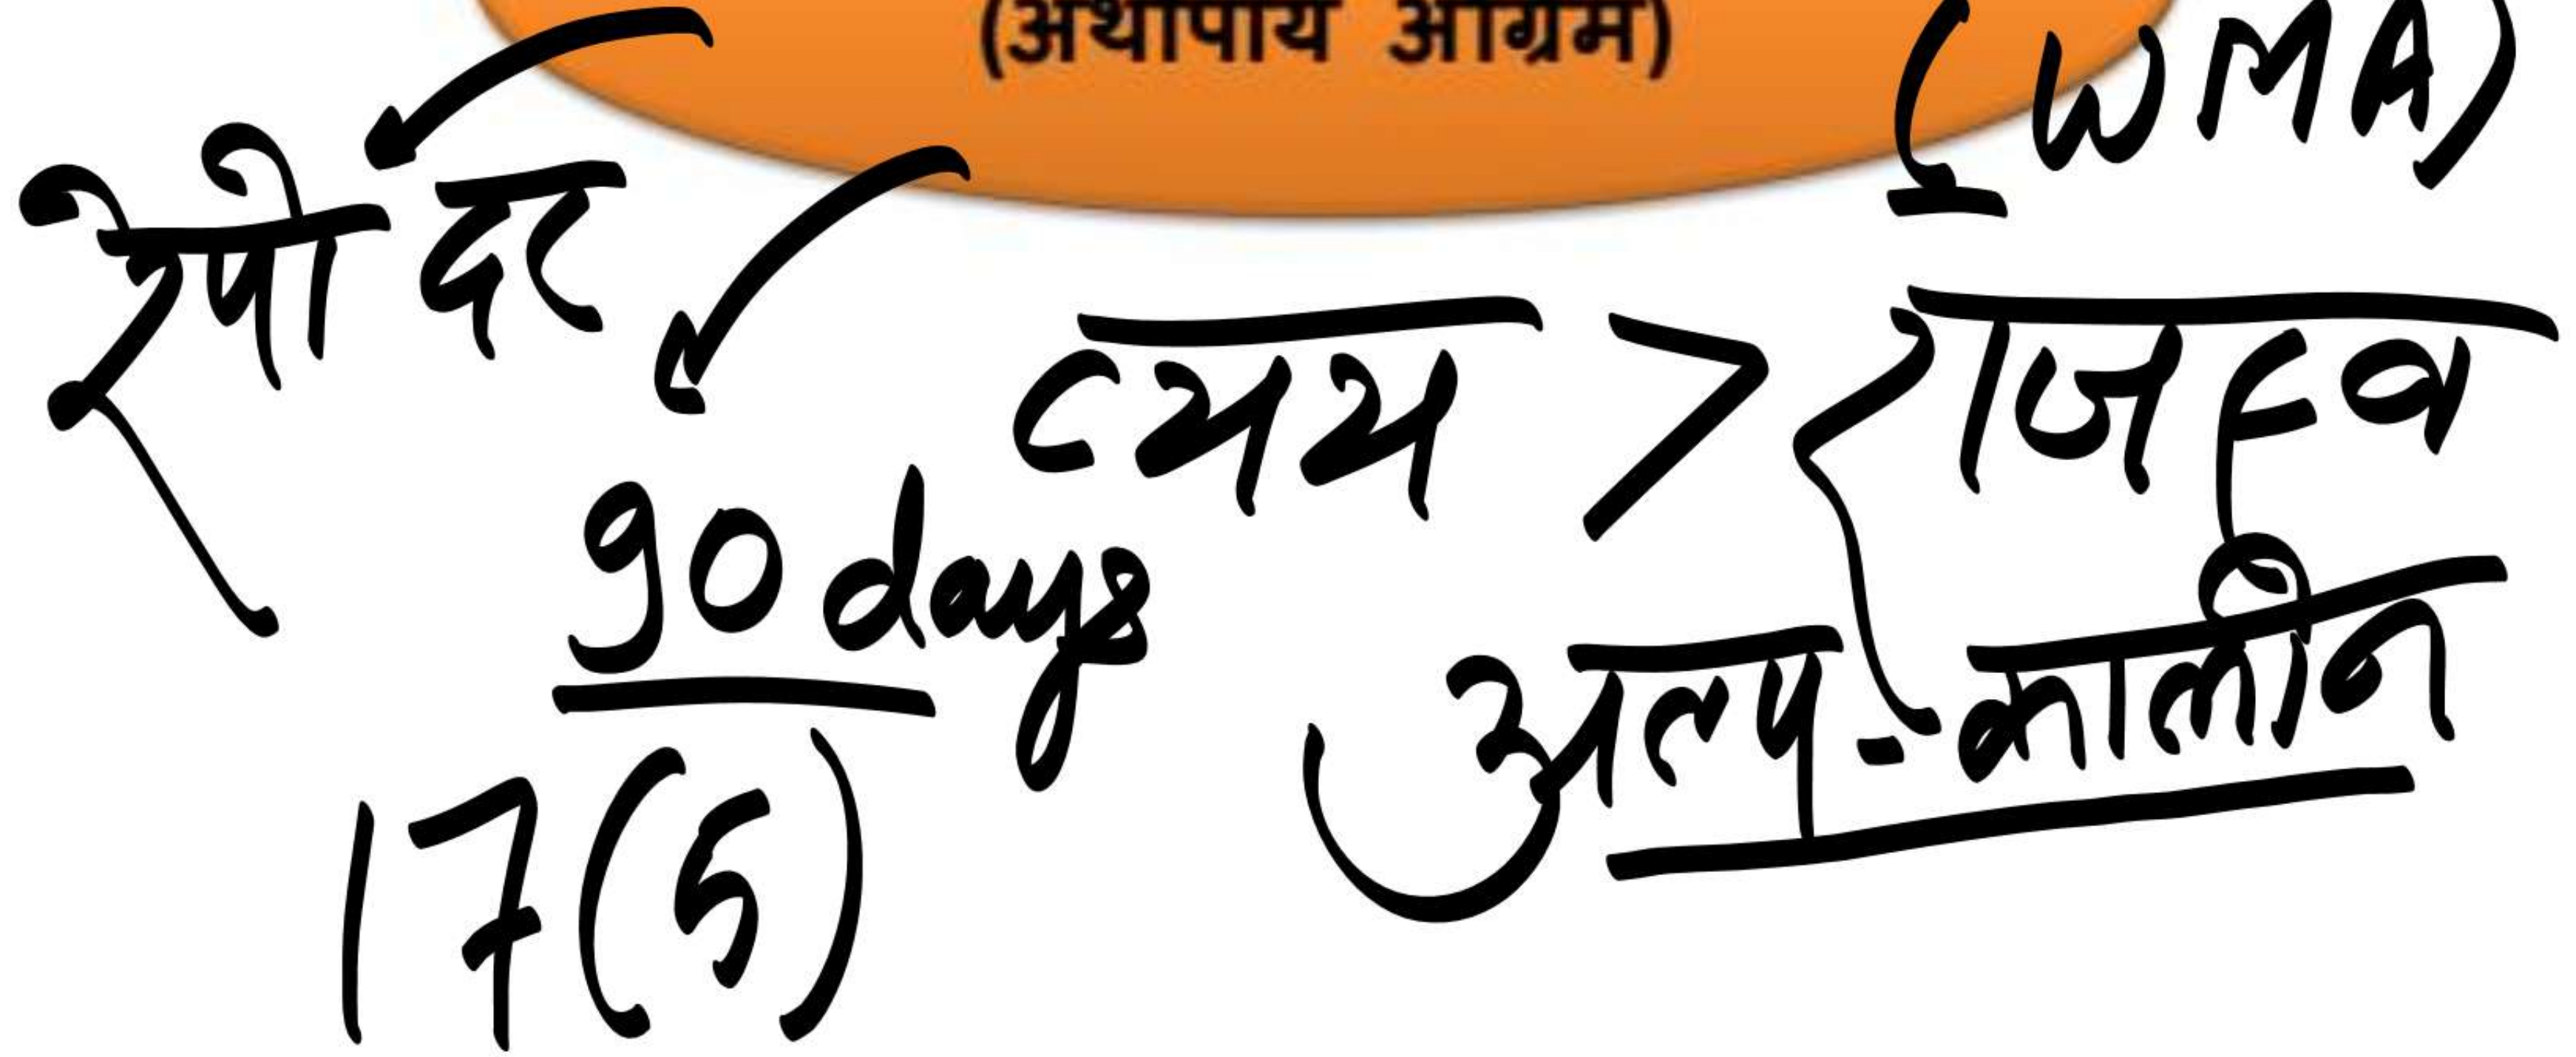 (अर्थोपाय अग्रिम)
(WMA)
रेपो दर
व्यय > राजस्व
90 days
अल्प-कालीन
17(5)